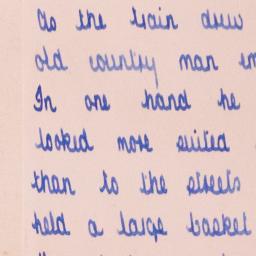 As the train drew
old country man em
In one hand he
looked more suited
than to the streets
held a large basket